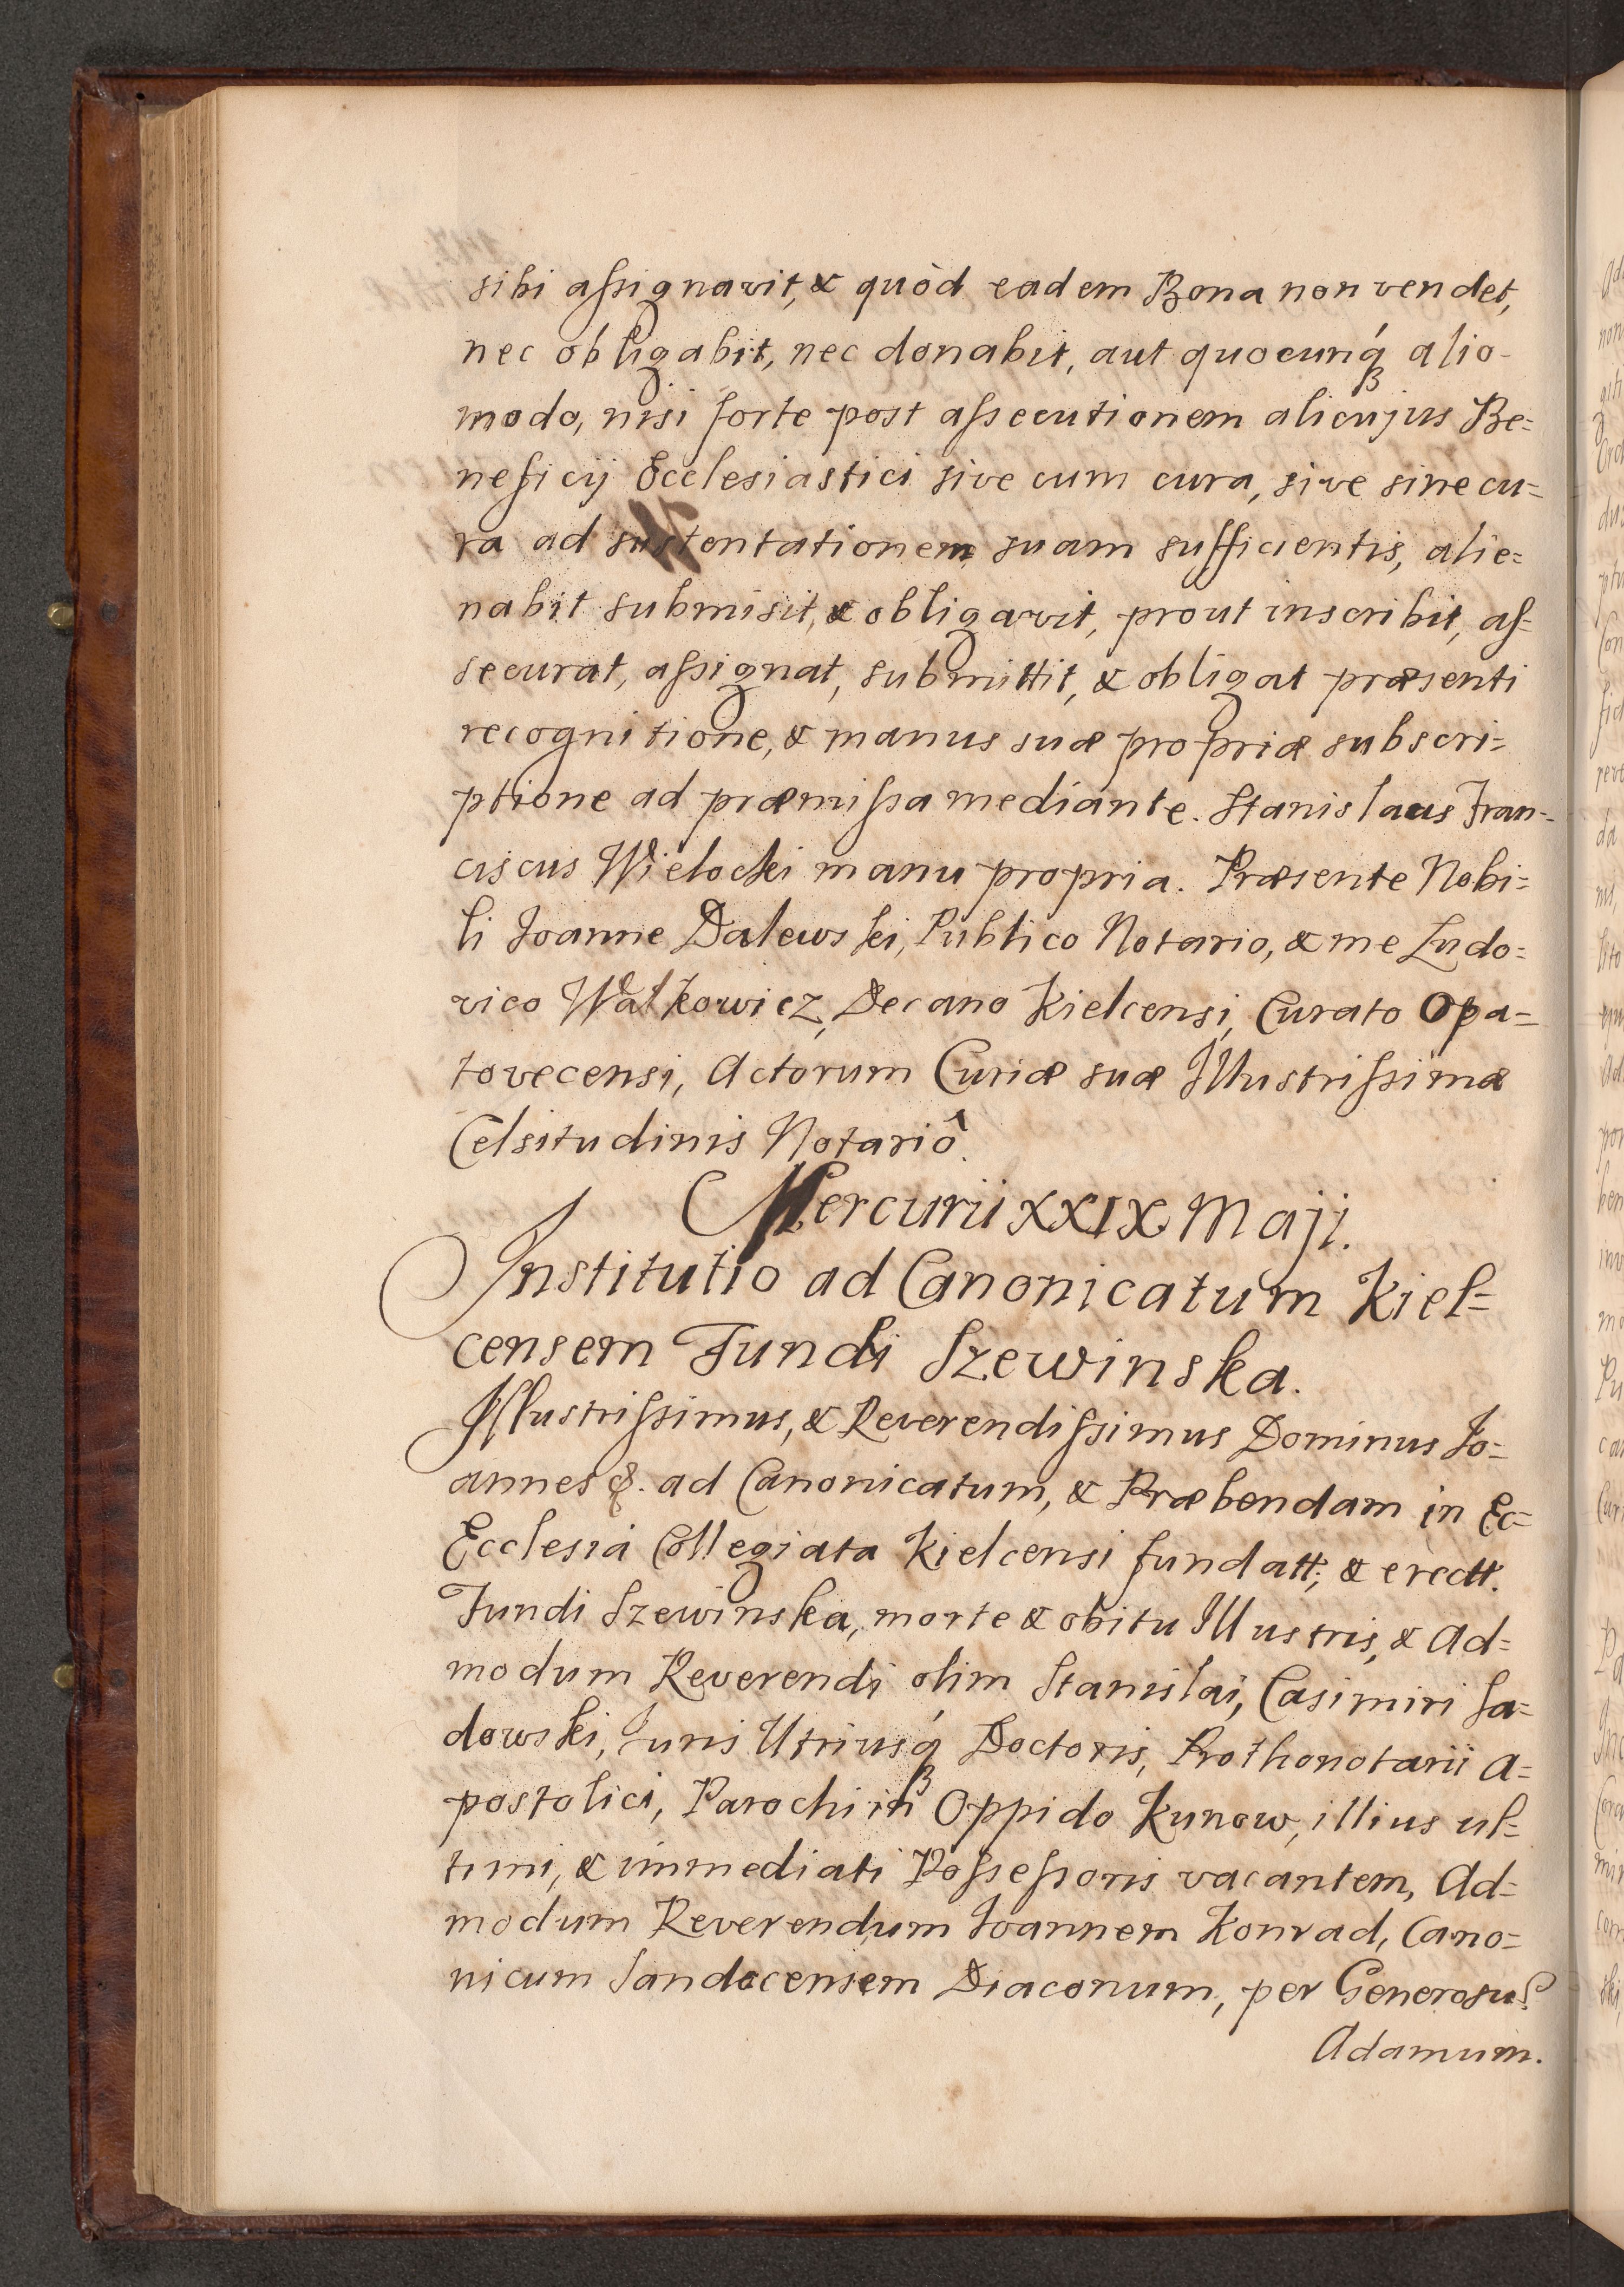 sibi assignavit, & quòd eadem Bona non vendet,
nec obligabit, nec donabit, aut quocunq́ꝫ alio
modo, nisi forte post assecutionem alicujus Be=
neficij Ecclesiastici sive cum cura, sive sine cu=
ra ad sustentationem suam sufficientis, alie=
nabit submisit, & obligavit, prout inscribit, as=
securat, assignat, submittit, & obligat præsenti
recognitione, & manus suæ propriæ subscri=
ptione ad præmissa mediante. Stanislaus Fran=
ciscus Wielocki manu propria. Præsente Nobi=
li Joanne Dalewski, Publico Notario, & me Ludo=
vico Watkowicz, Decano Kielcensi, Curato Opa=
tovecensi, Actorum Curiæ suæ Illustrissimæ
Celsitudinis Notariô.
Mercurii XXIX Maji.
Institutio ad Canonicatum Kiel=
censem Fundi Szewinska.
Illustrissimus, & Reverendissimus Dominus Jo=
annes &. ad Canonicatum, & Præbendam in Ec=
Ecclesiâ Collegiata Kielcensi fundatt; & erectt.
Fundi Szewinska, morte & obitu Illustris, & Ad=
modum Reverendi olim Stanislai, Casimiri Sa=
dowski, Juris Utriusq́ꝫ Doctoris, Prothonotarii A=
postolici, Parochi in Oppido Kunow, illius ul=
timi, & immediati Possessoris vacantem, Ad=
modum Reverendum Joannem Konrad, Cano=
nicum Sandecensem Diaconum, per Generosu͂
Adamum.